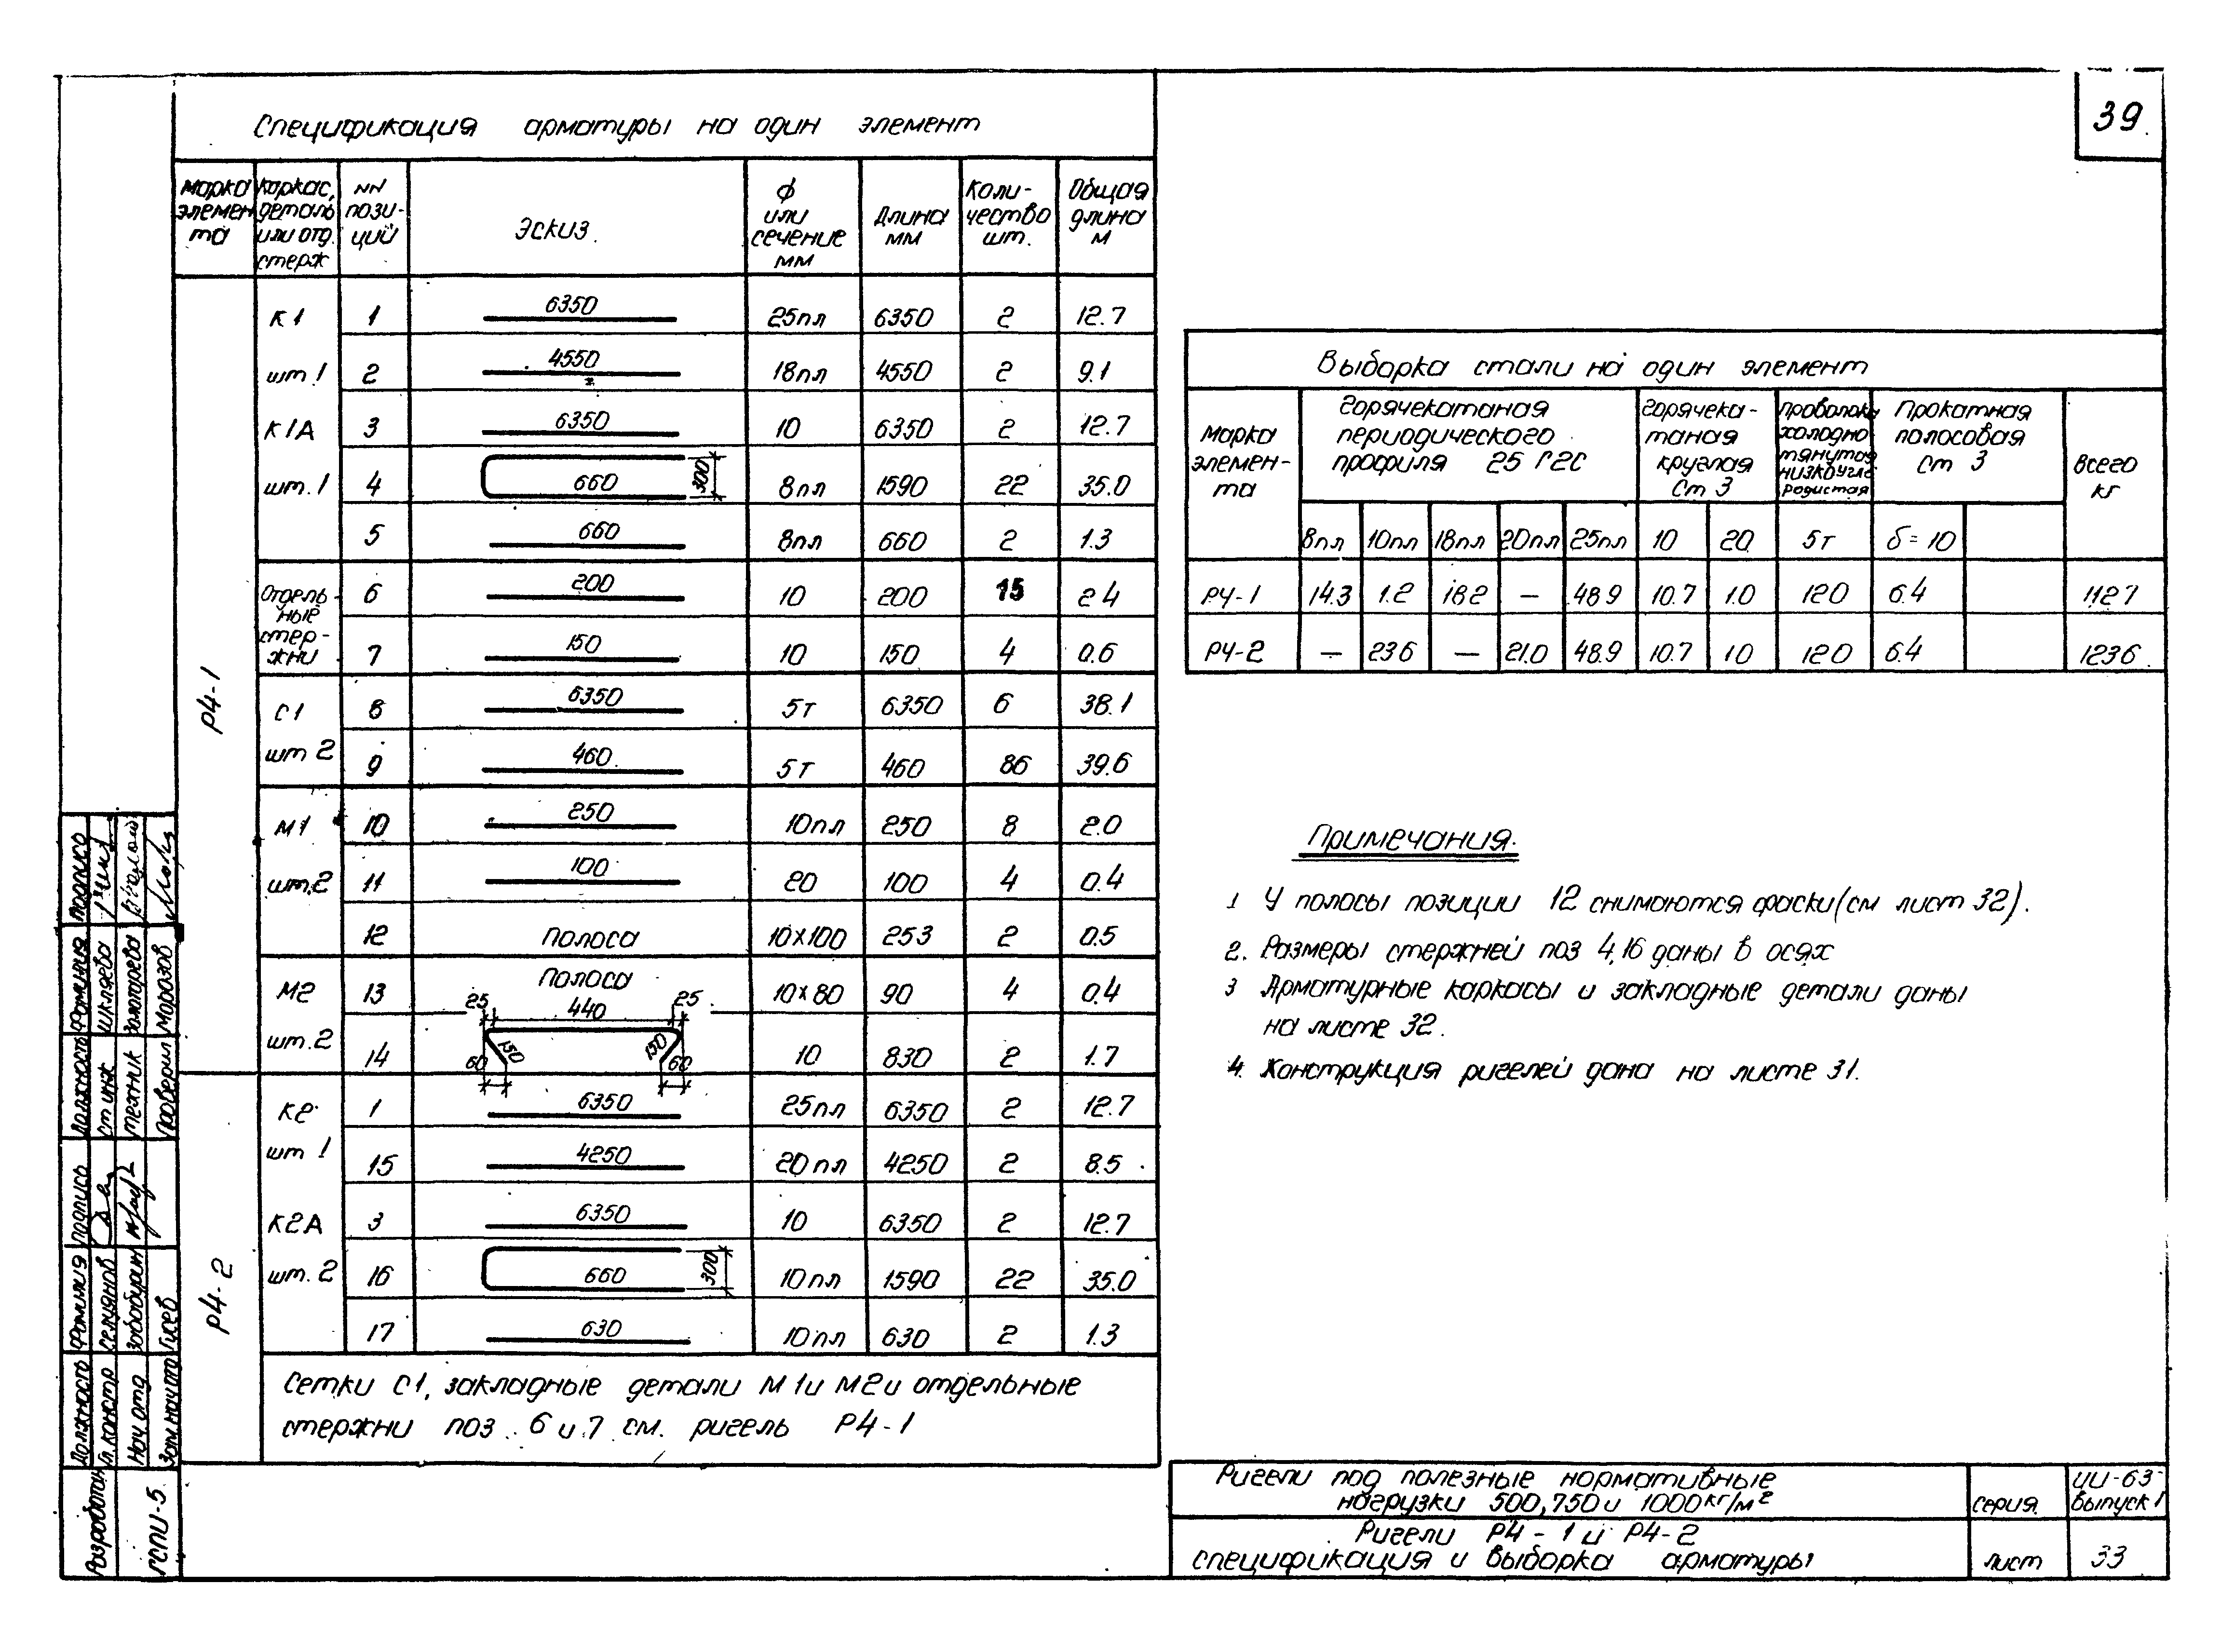 39
Спецификация арматуры на один элемент
Марка элемента | каркас, деталь или отд. стерж | NN позиций | Эскиз | ф или сечение мм | Длина мм | Количество шт. | Общая длина м
Р4-1
К1 | 1 | 6350 | 25пл | 6350 | 2 | 12.7
шт 1 | 2 | 4550 | 18пл | 4550 | 2 | 9.1
К1А | 3 | 6350 | 10 | 6350 | 2 | 12.7
шт. 1 | 4 | 660 300 | 8пл | 1590 | 22 | 35.0
5 | 660 | 8пл | 660 | 2 | 1.3
Отдельные стержни | 6 | 200 | 10 | 200 | 15 | 2 4
7 | 150 | 10 | 150 | 4 | 0.6
С1 | 8 | 6350 | 5т | 6350 | 6 | 38.1
шт 2 | 9 | 460 | 5т | 460 | 86 | 39.6
М1 | 10 | 250 | 10пл | 250 | 8 | 2.0
шт.2 | 11 | 100 | 20 | 100 | 4 | 0.4
12 | Полоса | 10х100 | 253 | 2 | 0.5
М2 | 13 | Полоса | 10х80 | 90 | 4 | 0.4
шт.2 | 14 | 25 440 25 150 150 60 60 | 10 | 830 | 2 | 1.7
Р4-2
К2 | 1 | 6350 | 25пл | 6350 | 2 | 12.7
шт 1 | 15 | 4250 | 20пл | 4250 | 2 | 8.5
К2А | 3 | 6350 | 10 | 6350 | 2 | 12.7
шт. 2 | 16 | 660 300 | 10пл | 1590 | 22 | 35.0
17 | 630 | 10пл | 630 | 2 | 1.3
Сетки С1, закладные детали М1 и М2 и отдельные
стержни поз. 6 и 7 см. ригель Р4-1
Выборка стали на один элемент
Марка элемента | Горячекатаная периодического профиля 25Г2С | Горячекатаная круглая Ст 3 | Проволока холоднотянутая низкоуглеродистая | Прокатная полосовая Ст 3 | Всего кг
8пл | 10пл | 18пл | 20пл | 25пл | 10 | 20 | 5т | б=10
Р4-1 | 14.3 | 1.2 | 182 | — | 48 9 | 10.7 | 1.0 | 12 0 | 6.4 | 112 7
Р4-2 | — | 23 6 | — | 21.0 | 48.9 | 10.7 | 1 0 | 12 0 | 6.4 | 123 6
Примечания.
1 У полосы позиции 12 снимаются фаски (см лист 32).
2. Размеры стержней поз 4, 16 даны в осях
3 Арматурные каркасы и закладные детали даны
на листе 32.
4. Конструкция ригелей дана на листе 31.
Ригели под полезные нормативные
нагрузки 500, 750 и 1000 кг/м²
серия
ИИ-63
выпуск 1
Ригели Р4-1 и Р4-2
спецификация и выборка арматуры
лист
33
Должность Фамилия Подпись
Ст инж Шкляева
техник
Проверил Морозов
Должность Фамилия Подпись
Гл. констр Селиянов
Нач отд
Зам нач отд Гусев
Разработан
ГСПИ-5